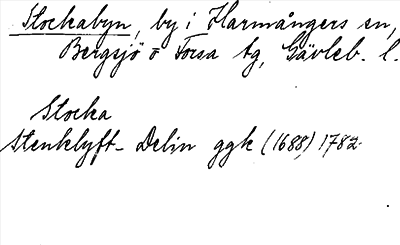 Stockabyn, by i Harmångers sn,
Bergsjö o Forsa tg, Gävleb. l.
Stocka
Stenklyft - Delin ggk (1688) 1782.